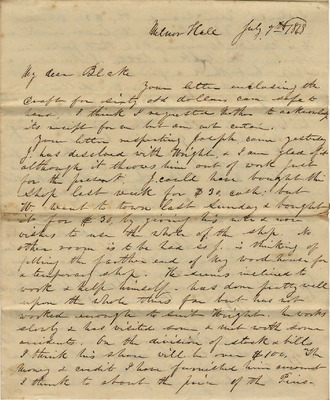 Milnor Hall July 7th 1863
My dear Blake
Your letter enclosing the
draft for sixty odd dollars came safe to
hand. I think I requested Mother to acknowledge
its receipt for me but am not certain.
Your letter respecting Joseph came yesterday
J. has dissolved with Wright, & I am glad of it
although it throws him out of work just
for the present. J. could have bought the
shop last week for $30, cash, but
W. went to town last Sunday & bought
it for $35, by giving his note & now
wishes to use the whole of the shop. No
other room is to be had & so J. is thinking of
fitting the farther end of my wood house for
a temporary shop. He seems inclined to
work & help himself - has done pretty well
upon the whole thus far but has not
worked enough to suit Wright. He works
slowly & has visited some & met with some
accidents. On the division of stock & bills
I think his share will be over $100. The
money & credit I have furnished him amount
I think to about the price of the